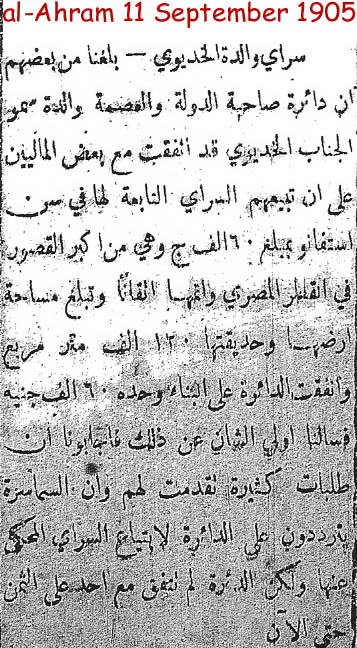 al-Ahram 11 September 1905
سراي والدة الخديوي — بلغنا من بعضهم
ان دائرة صاحبة الدولة والعصمة والدة سمو
الجناب الخديوي قد اتفقت مع بعض الماليين
على ان تبيعهم السراي التابعة لها في سان
استفانو بمبلغ ٦٠ الف ج وهي من اكبر القصور
في القطر المصري واتمها اتقانًا وتبلغ مساحة
ارضها وحديقتها ١٢٠ الف متر مربع
وانفقت الدائرة على البناء وحده ٦٠ الف جنيه
فسألنا اولي الشان عن ذلك فاجابونا ان
طلبات كثيرة تقدمت لهم وان السماسرة
يترددون على الدائرة لابتياع السراي المحكي
عنها ولكن الدائرة لم تتفق مع احد على الثمن
حتى الآن